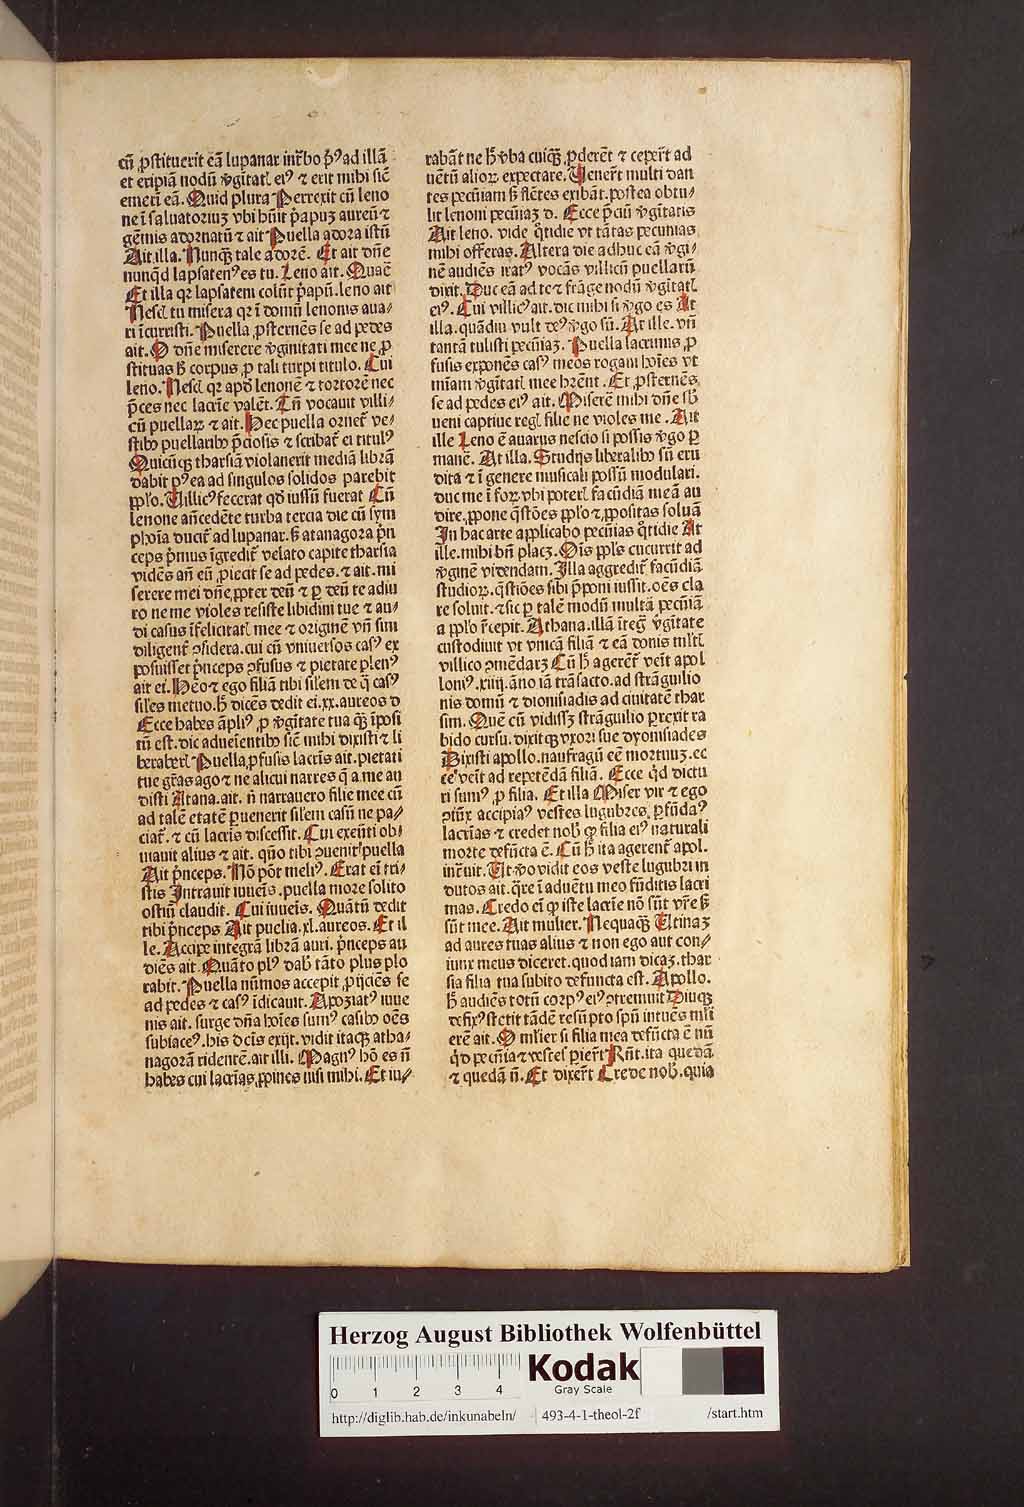 cū ꝓstituerit eā lupanar intˀbo pˀ⁹ ad illā
et eripiā nodū ꝟgitatꝭ ei⁹ ⁊ erit mihi siē
emerī eā. Quid plura Perrexit cū leno
ne ī saluatoriuꝫ vbi hūit pˀapuꝫ aureū ⁊
gēmis adornatū ⁊ ait Puella adora istū
Ait illa. Nunqꝫ tale adorē. Et ait dn̄e
nunqd lapsaten⁹ es tu. Leno ait. Quaē
Et illa qꝛ lapsateni colūt pˀapū. leno ait
Nescꝭ tu misera qꝛ ī domū lenonis aua⸗
ri īcurristi. Puella ꝓsternēs se ad pedes
ait. O dn̄e miserere ꝟginitati mee ne ꝓ
stituas ꝧ corpus ꝓ tali turpi titulo. Cui
leno. Nescꝭ qꝛ apd̓ lenonē ⁊ tortorē nec
pˀces nec lacrīe valēt. Tn̄ vocauit villi⸗
cū puellaꝝ ⁊ ait. Hec puella ornetˀ ve⸗
stibꝫ puellaribꝫ pˀciosis ⁊ scribatˀ ei titul⁹
Quicūqꝫ tharsiā violauerit mediā librā
dabit p⁹ ea ad singulos solidos parebit
ppl̓o. Uillic⁹ fecerat qd̓ iussū fuerat Cū
lenone an̄cedēte turba tercia die cū sym
phoīa ducitˀ ad lupanar. ß atanagora pˀn
ceps pˀmus īgreditˀ velato capite tharsia
vidēs an̄ eū ꝓiecit se ad pedes. ⁊ ait. mi
serere mei dn̄e, ꝓpter deū ⁊ ꝑ deū te adiu
ro ne me violes resiste libidini tue ⁊ au⸗
di casus īfelicitatꝭ mee ⁊ originē vn̄ sim
diligentˀ ꝯsidera. cui cū vniuersos cas⁹ ex
posuisset pˀnceps ꝯfusus ⁊ pietate plen⁹
ait ei. Hēo ⁊ ego filiā tibi sil̓em de q̄ cas⁹
sil̓es metuo. ꝧ dicēs dedit ei. xx. aureos d
Ecce habes āpli⁹ ꝓ ꝟgitate tua qꝫ īposi
tū est. dic adueīentibꝫ siē mihi dixisti ⁊ li
beraberꝭ Puella, ꝓfusis lacrīs ait. pietati
tue grās ago ⁊ ne alicui narres q̄ a me au
disti Atana. ait. n̄ narrauero filie mee cū
ad talē etatē ꝑuenerit sil̓em casū ne pa⸗
ciatˀ. ⁊ cū lacrīs discessit. Cui exeūti ob⸗
uiauit alius ⁊ ait. qūo tibi ꝯuenitˀ puella
Ait pˀnceps. Nō pōt meli⁹. Erat eī tri⸗
stis Intrauit iuueīs. puella more solito
ostiū claudit. Cui iuueīs. Quātū dedit
tibi pˀnceps Ait puella. xl. aureos. Et il
le. Accipe integrā librā auri. pˀnceps au
diēs ait. Quāto pl⁹ dabꝭ tāto plus plo
rabit. Puella nūmos accepit ꝓijciēs se
ad pedes ⁊ cas⁹ īdicauit. Apoꝛiat⁹ iuue
nis ait. surge dn̄a hoīes sum⁹ casibꝫ oēs
subiace⁹. his dc̄is exijt. vidit itaqꝫ atha⸗
nagorā ridentē. ait illi. Magn⁹ hō es n̄
habes cui lacrīas, ꝓpines nisi mihi. Et iu⸗
rabāt ne ꝧ ꝟba cuiqꝫ ꝓderēt ⁊ ceperˀt ad
uētū alioꝝ expectare. Uenerˀt multi dan
tes pecūiam ß flētes exibāt. postea obtu⸗
lit lenoni pecūiaꝫ d. Ecce pˀciū ꝟgitatis
Ait leno. vide qˀtidie vt tātas pecunias
mihi offeras. Altera die adhuc eā ꝟgi⸗
nē audiēs irat⁹ vocās villicū puellarū
dixit. Duc eā ad te ⁊ frāge nodū ꝟgitatꝭ
ei⁹. Cui villic⁹ ait. dic mihi si ꝟgo es At
illa. quādiu vult de⁹ ꝟgo sū. At ille. vn̄
tantā tulisti pecūiaꝫ. Puella lacrimis ꝓ
fusis exponēs cas⁹ meos rogaui hoīes vt
mīam ꝟgitatꝭ mee hrēnt. Et ꝓsternēs
se ad pedes ei⁹ ait. Miserē mihi dn̄e sb̓
ueni captiue regꝭ filie ne violes me. Ait
ille Leno ē auarus nescio si possis ꝟgo ꝑ
manē. At illa. Studijs liberalibꝫ sū eru
dita ⁊ ī genere musicali possū modulari.
duc me ī foꝝ vbi poterꝭ facūdiā meā au
dire, ꝓpone qˀstōes ppl̓o ⁊, ꝓpositas soluā
In hac arte applicabo pecūias qˀtidie At
ille. mihi bn̄ placꝫ. Oīs ppl̓s cucurrit ad
ꝟginē videndam. Illa aggreditˀ facūdiā
studioꝝ. qˀstiōes sibi pˀponi iussit. oēs cla
re soluit. ⁊ sic ꝑ talē modū multā pecūiā
a ppl̓o rˀcepit. Athana. illā īteg̓ ꝟgitate
custodiuit vt vnicā filiā ⁊ eā donis mltꝭ
villico ꝯmēdarꝫ Cū ꝧ agerētˀ veīt apol
loni⁹. xiiij. āno iā trāsacto. ad strāguilio
nis domū ⁊ dionisiadis ad ciuitatē thar
sim. Quē cū vidissꝫ strāguilio ꝑrexit ra
bido cursu. dixitqꝫ vxori sue dyonisiades
Dixisti apollo. naufragū eē mortuuꝫ. ec
ce veīt ad repetēdā filiā. Ecce qˀd dictu
ri sum⁹ ꝓ filia. Et illa Miser vir ⁊ ego
ꝯiūx accipia⁹ vestes lugubres, ꝑfūda⁹
lacrīas ⁊ credet nobꝭ ꝙ filia ei⁹ naturali
morte defūcta ē. Cū ꝧ ita agerentˀ apol.
intˀuit. Ut ꝟo vidit eos veste lugubri in
dutos ait. qˀre ī aduētu meo fūditis lacri
mas. Credo eī ꝙ iste lacrīe nō sūt vrˀe ß
sūt mee. Ait mulier. Nequaqꝫ Utinaꝫ
ad aures tuas alius ⁊ non ego aut con⸗
iunx meus diceret. quod iam dicaꝫ. thar
sia filia tua subito defuncta est. Apollo.
ꝧ audiēs totū corp⁹ ei⁹ ꝯtremuit Diuqꝫ
defix⁹ stetit tādē resūpto spū intuēs mlˀi
erē ait. O mlˀier si filia mea defūcta ē nū
qˀd pecūia ⁊ vestes ꝑierˀt Rn̄t. ita quedā
⁊ quedā n̄. Et dixerˀt Crede nobꝭ. quia
Herzog August Bibliothek Wolfenbüttel
0 1 2 3 4
Kodak
Gray Scale
http://diglib.hab.de/inkunabeln/ 493-4-1-theol-2f /start.htm